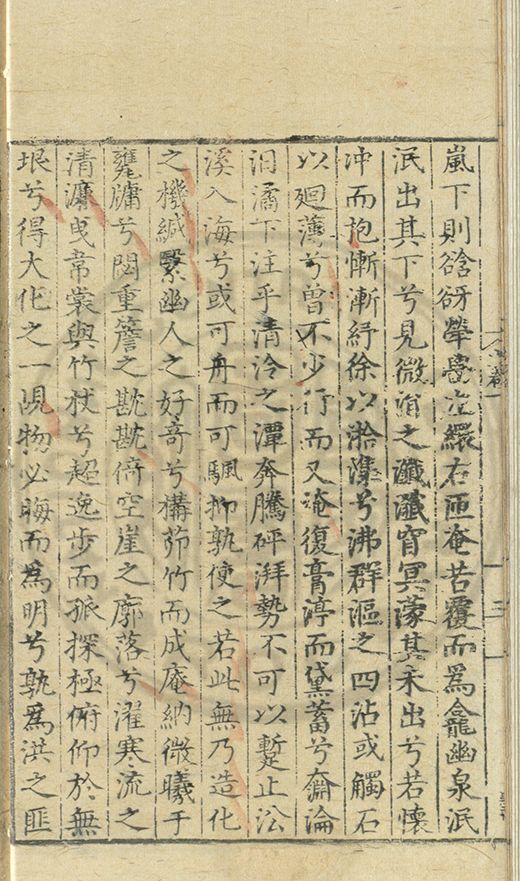 嵐下則谽谺犖嶨左繚右匝奄若覆而爲龕幽泉泯
泯出其下兮見微涓之瀸瀸窅冥濛其未出兮若懷
冲而抱慚漸紓徐以淤潗兮沸群漚之四沾或觸石
以廻薄兮曾不少行而又淹復膏渟而黛蓄兮奫淪
汨潏下注乎清泠之潭奔騰砰湃勢不可以蹔止㳂
溪入海兮或可舟而可颿抑孰使之若此無乃造化
之機緘繄幽人之好奇兮構茆竹而成庵納微曦于
甕牖兮閟重簷之戡戡倚空崖之廓落兮濯寒流之
清濂曳常裳與竹杖兮超逸步而孤探極俯仰於無
垠兮得大化之一覘物必晦而爲明兮孰爲洪之匪
卷一
三